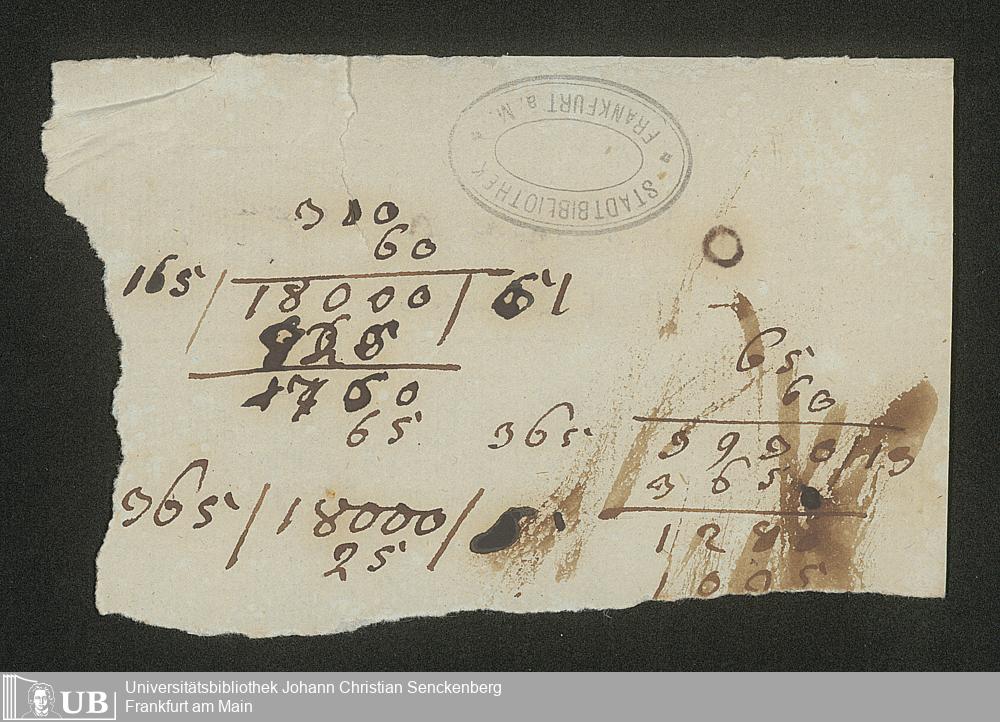 STADTBIBLIOTHEK FRANKFURT a. M.
300
60
165 / 18000 /
60
65
365 / 18000 /
25
0
65
60
365
3990 / 13
365
128
1005
UB
Universitätsbibliothek Johann Christian Senckenberg
Frankfurt am Main